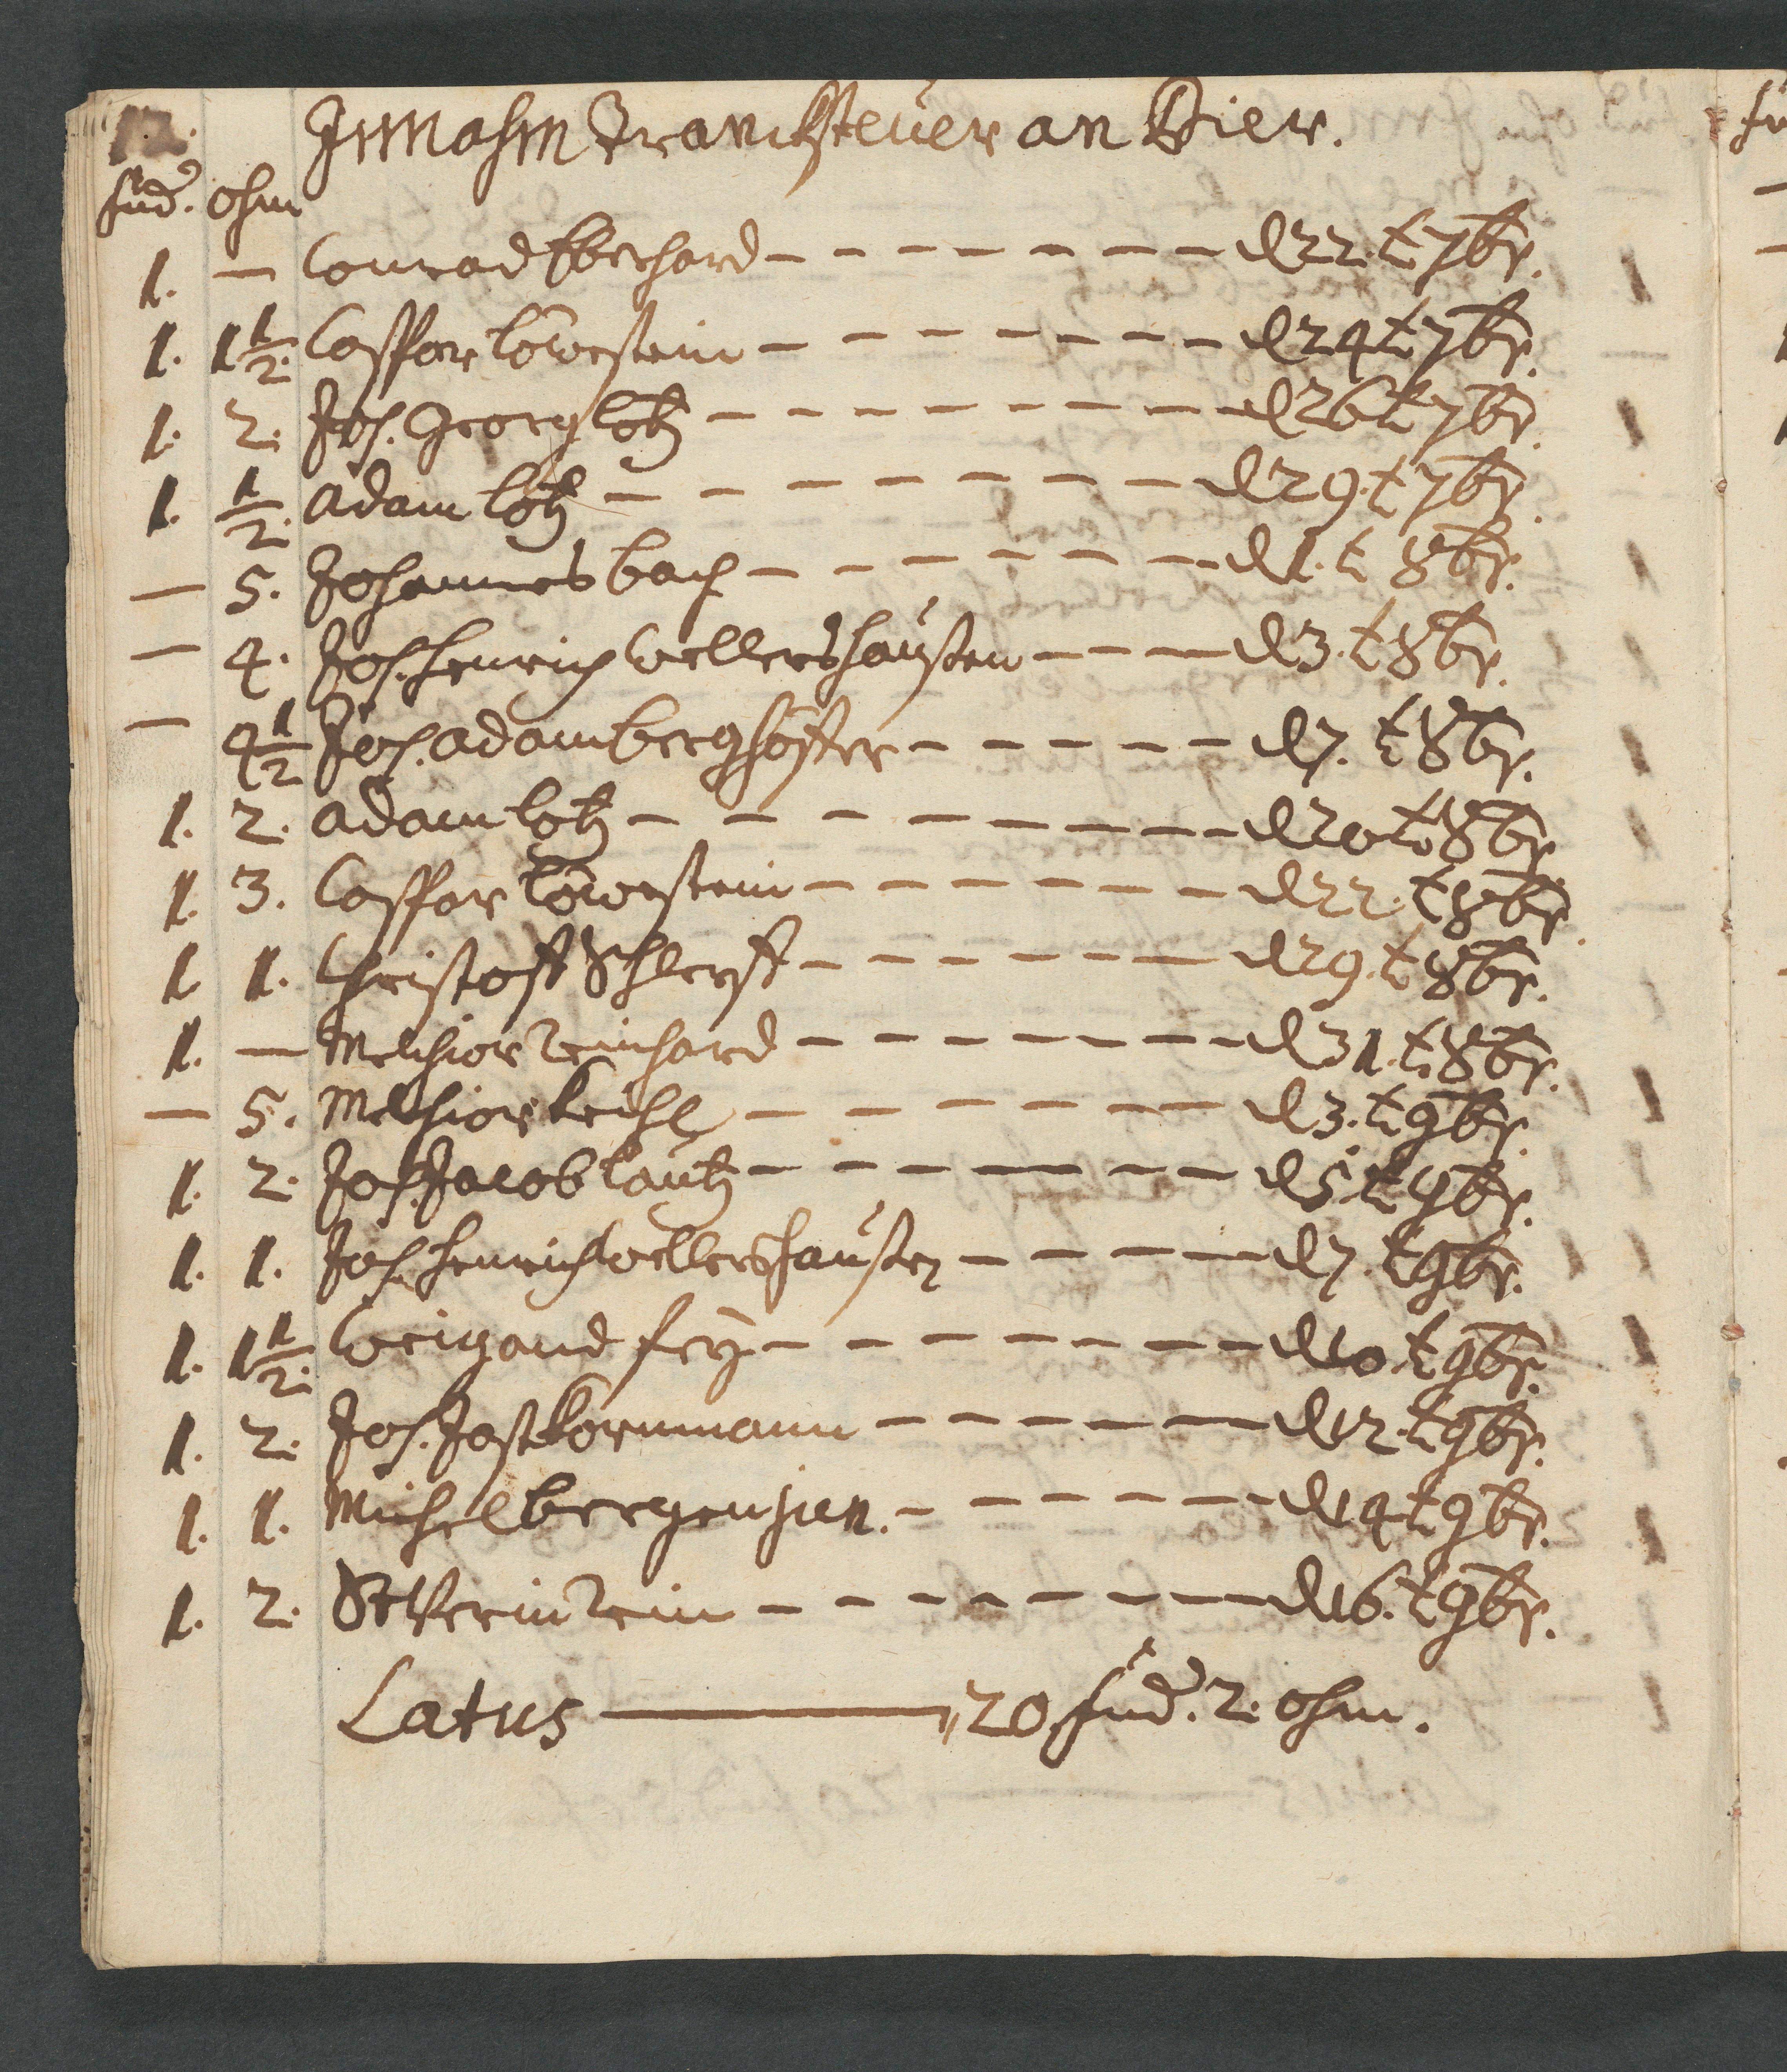 12.
Innahm Tranksteüer an Bier.
fud. ohm
1. — Conrad Eberhard - - - - - - - - d 22. t 7br.
1. 1 1/2. Casspar Löwestein - - - - - - - d 24 t 7br.
1. 2. Joh. Georg Lotz - - - - - - - - d 26 t 7br.
1. 1/2. Adam Lotz - - - - - - - - d 29. t 7br.
— 5. Johannes bach - - - - - - - d 1. t 8br.
— 4. Joh. Henrich Wellershaußen - - - d 3. t 8br.
— 4 1/2 Joh. Adam berghöffer - - - - - d 7. t 8br.
1. 2. Adam Lotz - - - - - - - - d 20 t 8br.
1. 3. Casspar Löwestein - - - - - - d 22. t 8br.
1. 1. Christoff Schlerff - - - - - - d 29. t 8br.
1. — Melchior Reinhard - - - - - - - d 31. t 8br.
— 5. Melchior Keihl - - - - - - - d 3. t 9br.
1. 2. Joh. Jacob Lautz - - - - - - - d 5. t 9br.
1. 1. Joh. Henrich Wellershaußen - - - - d 7. t 9br.
1. 1 1/2. Weigand Feÿ - - - - - - - d 10. t 9br.
1. 2. Joh. Jost Kornmann - - - - - - d 12. t 9br.
1. 1. Michel bergen jun. - - - - - - d 14 t 9br.
1. 2. Severin Rein - - - - - - - d 16. t 9br.
Latus ——— 20. fud. 2. ohm.